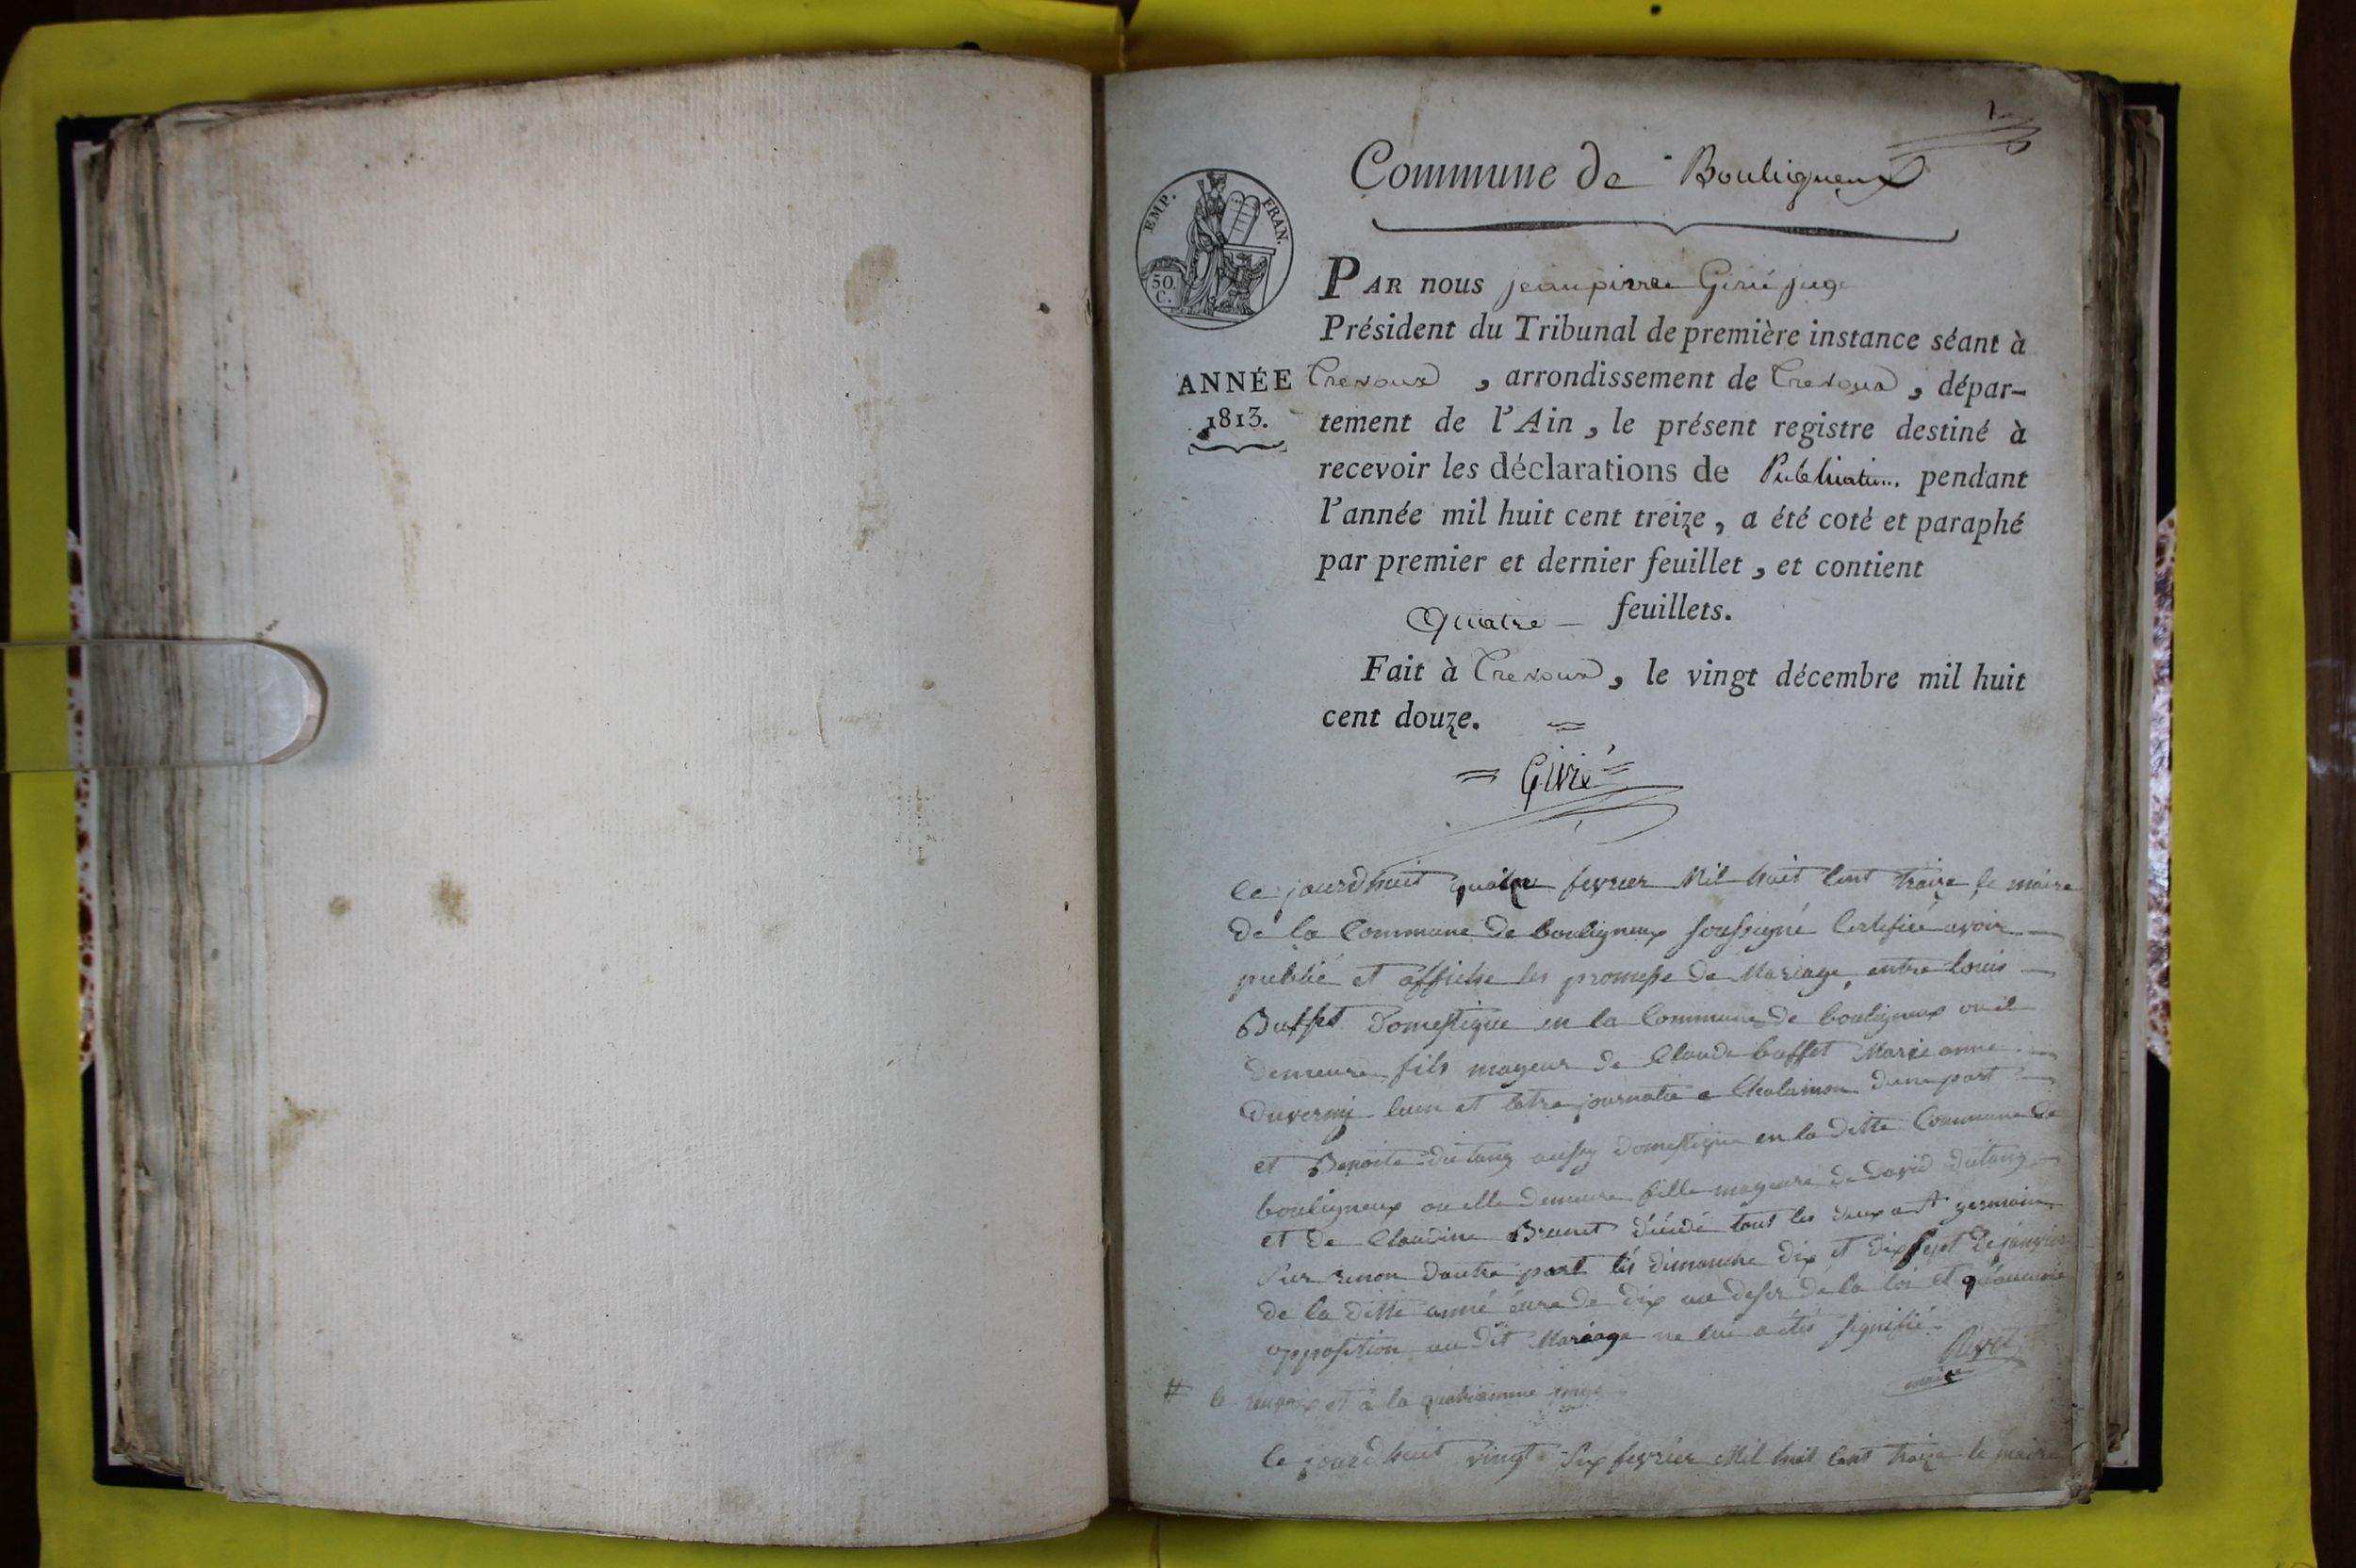 1
Commune de Bouligneux
EMP. FRAN.
50. C.
PAR nous jean pierre Girié juge
Président du Tribunal de première instance séant à
ANNÉE
1813.
Trevoux, arrondissement de Trevoux, dépar-
tement de l'Ain, le présent registre destiné à
recevoir les déclarations de Publication pendant
l'année mil huit cent treize, a été coté et paraphé
par premier et dernier feuillet, et contient
Quatre feuillets.
Fait à Trevoux, le vingt décembre mil huit
cent douze.
Girié
Ce jourdhuit quatre fevrier Mil huit Cent traize le maire
de la Commune de bouligneux soussigné Certifié avoir
publié et affiche les promesse de Mariage entre louis
Buffet Domestique en la Commune de bouligneux ou il
demeure fils mageur de Claude buffet Marie anne
lun et lotre journalié a Chalamon dune part
et Benoite dutang aussy domestique en la ditte Commune de
bouligneux ou elle demeure fille mageure de david dutang
et de Claudine Brunet décédé tout les deux a st germain
sur renon dautre part les dimanche dix et dix sept de janvier
de la ditte anné eure de dix au desir de la loi et quaucune
opposition au dit Mariage ne lui a étés signifié
maire
# le renvoix et à la quatriemme page
Ce jourdhuit vingt Six fevrier Mil huit Cent traize le maire